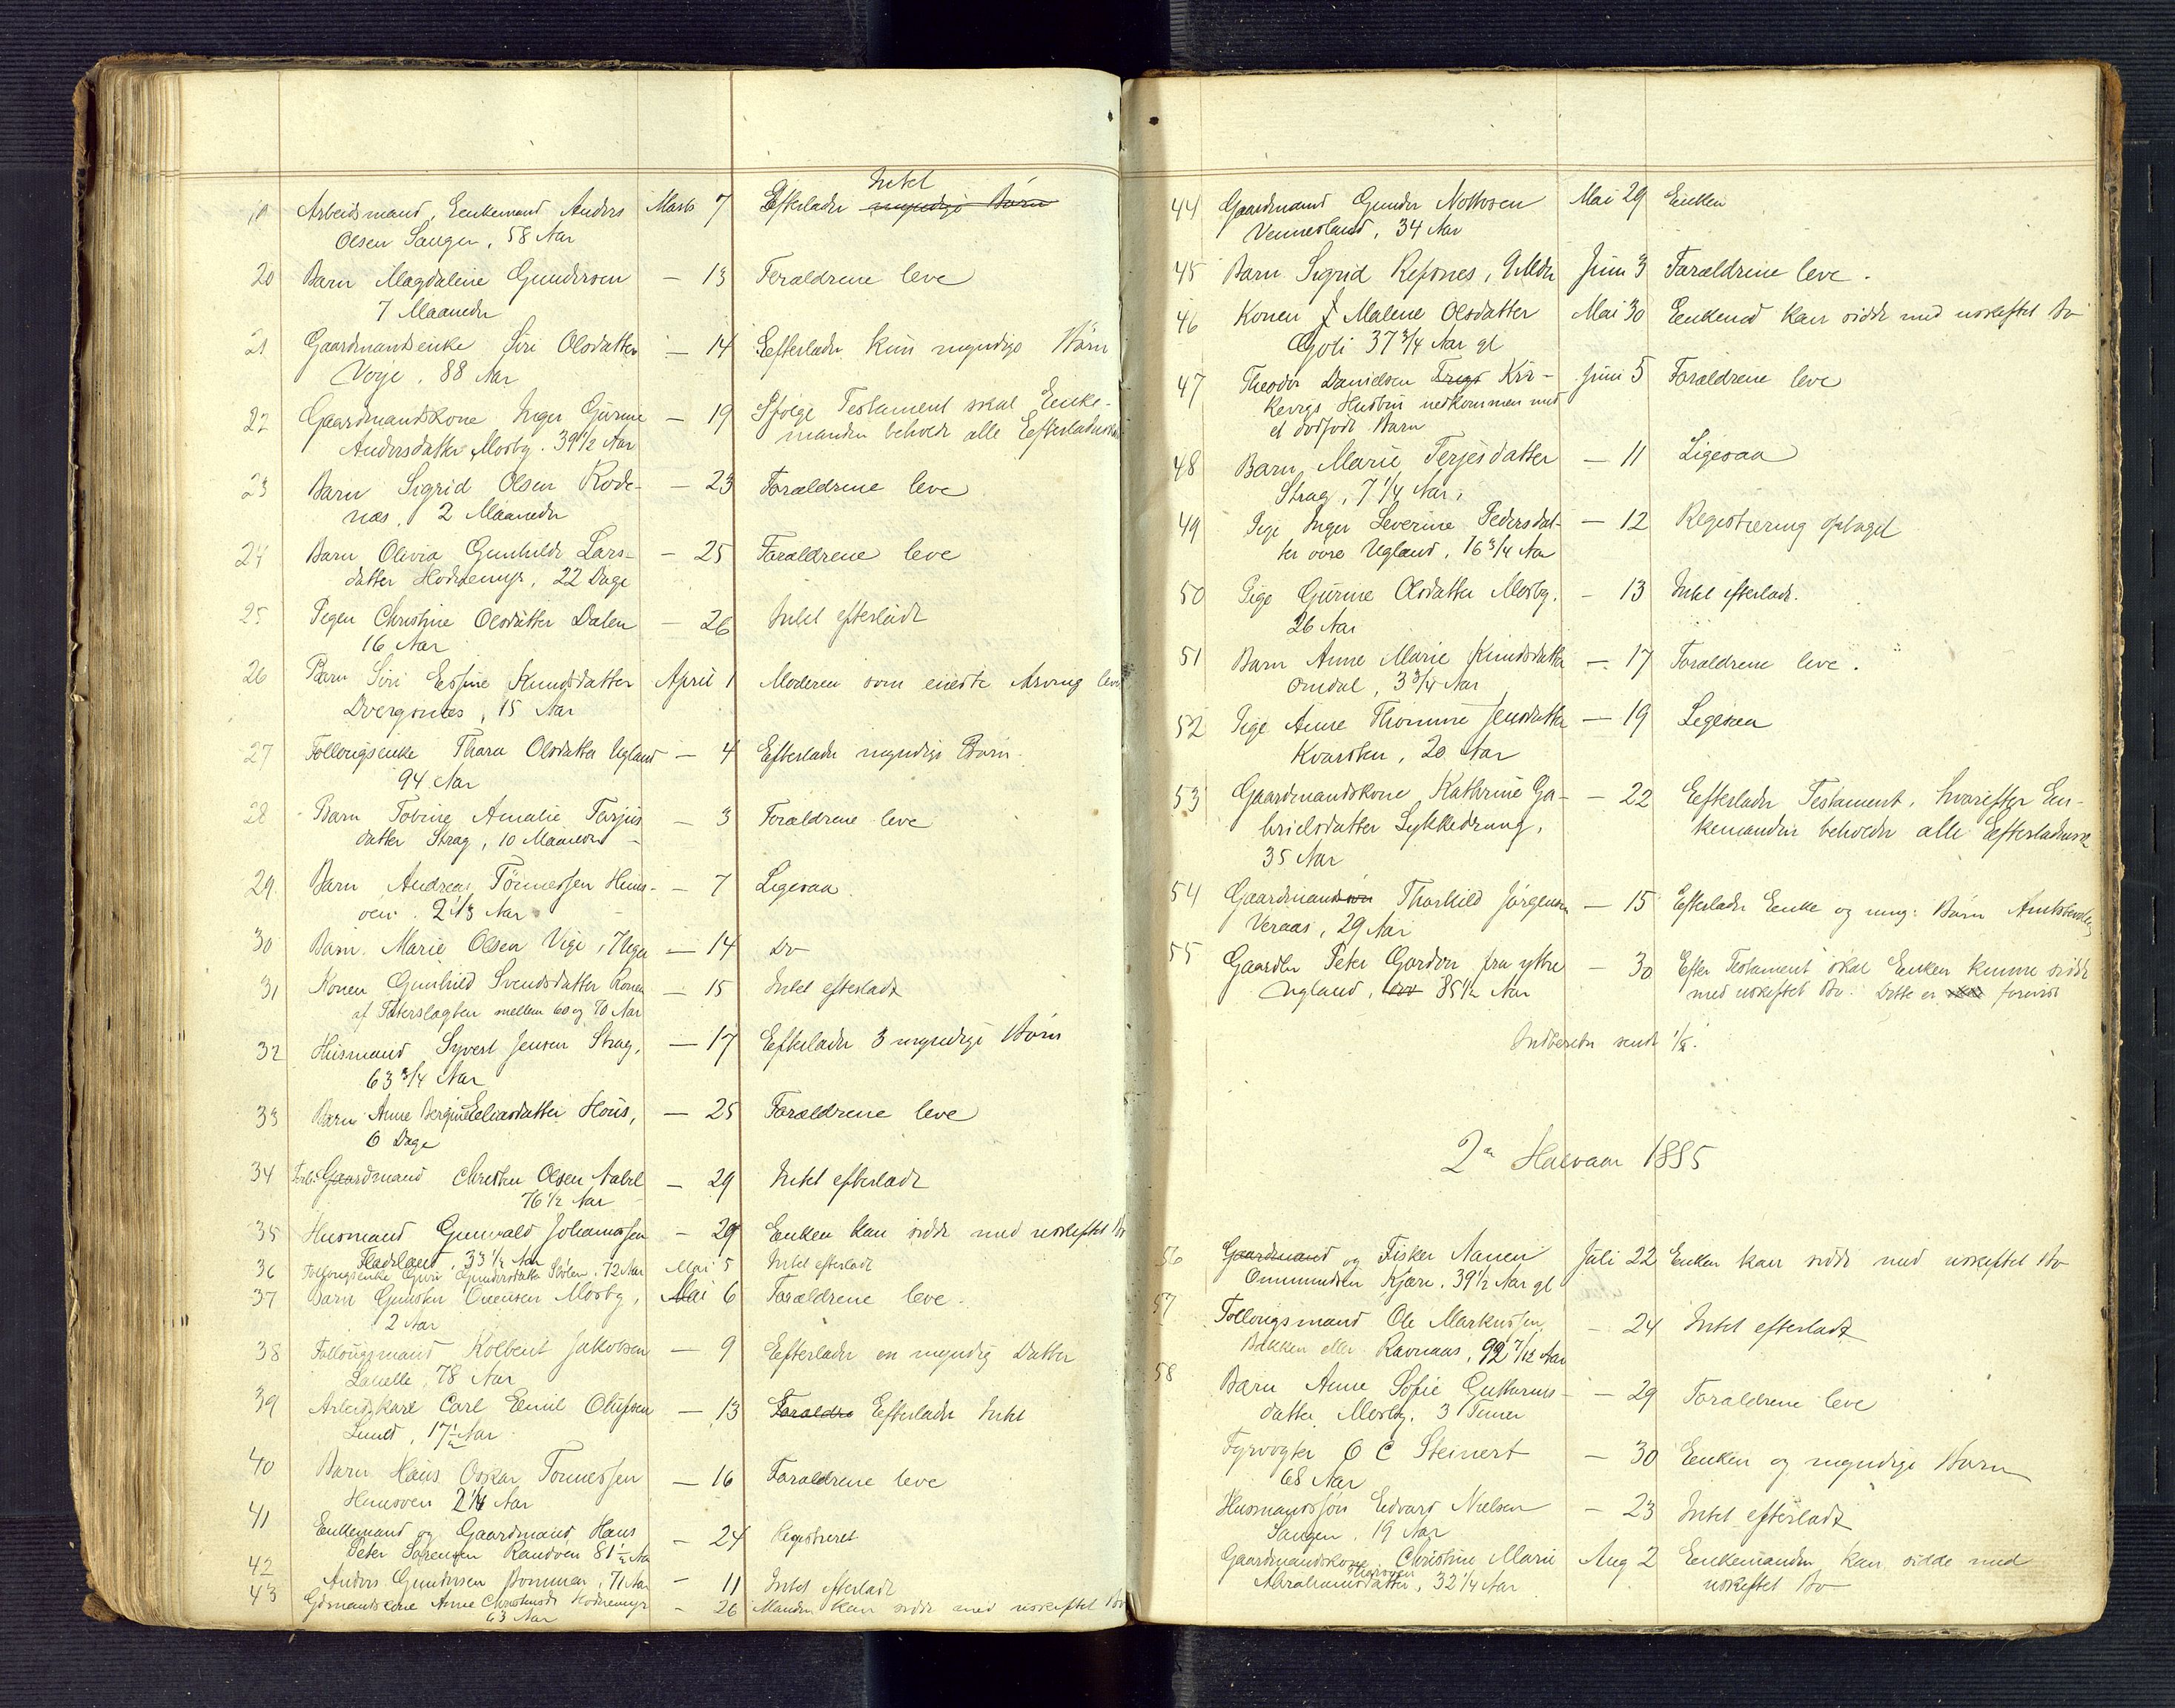 19 Arbeidsmand, Enkemand Anders Marts 7 Efterlader Intet myndige Børn
Olsen Sangen, 58 Aar
20 Barn Magdaline Gundersen — 13 Forældrene leve
7 Maaneder
21 Gaardmandsenke Siri Olsdatter — 14 Efterlader kun myndige Børn
Voje, 88 Aar
22 Gaardmandskone Inger Gurine — 19 Ifølge Testament skal Enke-
Andersdatter Mosby. 39 1/2 Aar manden beholde alle Efterladenskab
23 Barn Sigrid Olsen Rode- — 23 Forældrene leve
næs, 2 Maaneder
24 Barn Olivia Gunhilde Lars- — 25 Forældrene leve
datter Hodnemyr, 22 Dage
25 Pigen Christine Olsdatter Dalen — 26 Intet efterladt
16 Aar
26 Barn Siri Knudsdatter April 1 Moderen som eneste Arving lever
Dvergsnes, 15 Aar
27 Follougsenke Thora Olsdatter Ugland — 4 Efterlader myndige Børn
94 Aar
28 Barn Tobine Amalie Terjes — 3 Forældrene leve
datter Strag, 10 Maaneder
29 Barn Andreas Tönnessen Hems- — 7 Ligesaa
øen. 2 1/3 Aar
30 Barn Marie Olsen Vige, 7 Uger — 14 Do
31 Konen Gunhild Svendsdatter Ronen — 15 Intet efterladt
af Taterslagten mellem 60 og 70 Aar
32 Husmand Syvert Jensen Strag, — 17 Efterlader 3 myndige Børn
63 3/4 Aar
33 Barn Anne Bergine Eliasdatter Høus, — 25 Forældrene leve
6 Dage
34 Gaardmand Christen Olsen Aabel — 29 Intet efterladt
76 1/2 Aar
35 Husmand Gunvald Johannessen — 29 Enken kan sidde med uskiftet Bo
Fladeland, 33 1/2 Aar
36 Follougsenke Guri Gundersdatter Stølen, 72 Aar Mai 5 Intet efterladt
37 Barn Gunsten Mosby, Mai 6 Forældrene leve
2 Aar
38 Follougsmand Kolbent Jakobsen — 9 Efterlader en myndig Datter
78 Aar
39 Arbeidskarl Carl Emil Olufsen — 13 Forældre Efterlader Intet
Lund, 17 1/2 Aar
40 Barn Hans Oskar Tönnessen — 16 Forældrene leve
Hemsøen 2 1/4 Aar
41 Enkemand og Gaardmand Hans — 24 Registreret
Peter Sørensen Randøen 81 1/2 Aar
42 Anders Gundersen Bommen, 71 Aar — 11 Intet efterladt
43 Gdmandskone Anne Christensd Hodnemyr — 26 Manden kan sidde med uskiftet Bo
63 Aar
44 Gaardmand Gunder Mai 29 Enken
Vennesland, 34 Aar
45 Barn Sigrid Repsnes, 9 Mdr Juni 3 Forældrene leve.
46 Konen Malene Olsdatter Mai 30 Enkemd kan sidde med uskiftet Bo
37 3/4 Aar gl
47 Theodor Danielsen Kir- Juni 5 Forældrene leve
kevigs Hustru nedkommen med
et dødfødt Barn
48 Barn Marie Terjesdatter — 11 Ligesaa
Strag, 7 1/4 Aar,
49 Pige Inger Severine Pedersdat- — 12 Registrering optaget
ter øvre Ugland, 16 3/4 Aar
50 Pige Gurine Olsdatter Mosby. — 13 Intet efterladt.
26 Aar
51 Barn Anne Marie Knudsdatter — 17 Forældrene leve.
Omdal, 3 3/4 Aar
52 Pige Anne Thomine Jensdatter — 19 Ligesaa
20 Aar
53 Gaardmandskone Kathrine Ga- — 22 Efterlader Testament, hvorefter En-
brielsdatter Lykkedrang, kemanden beholder alle Efterladensk
35 Aar
54 Gaardmandsøn Thorkild Jørgensen — 15 Efterlader Enke og umg: Børn
Veraas, 29 Aar
55 Gaardbr Peter Gordon fra ytre — 30 Efter Testament skal Enken kunne sidde
Ugland, 85 1/2 Aar med uskiftet Bo. Dette er forevist
Indberetn sendt
2n Halvaar 1885
56 Gaardmand og Fisker Aanen Juli 22 Enken kan sidde med uskiftet Bo
Ommundsen Kjære, 39 1/2 Aar gl
57 Follougsmand Ole Markussen — 24 Intet efterladt
Bakken eller Ravnaas, 92 7/12 Aar
58 Barn Anne Sofie Guttorms- — 29 Forældrene leve
datter Mosby. 3 Timer
Fyrvogter O C Steinert — 30 Enken og myndige Børn
68 Aar
Husmandssøn Edvard Nielsen — 23 Intet efterladt
Sangen, 19 Aar
Gaardmandskone Christine Marie Aug 2 Enkemanden kan sidde med
Abrahamsdatter, 32 1/4 Aar uskiftet Bo